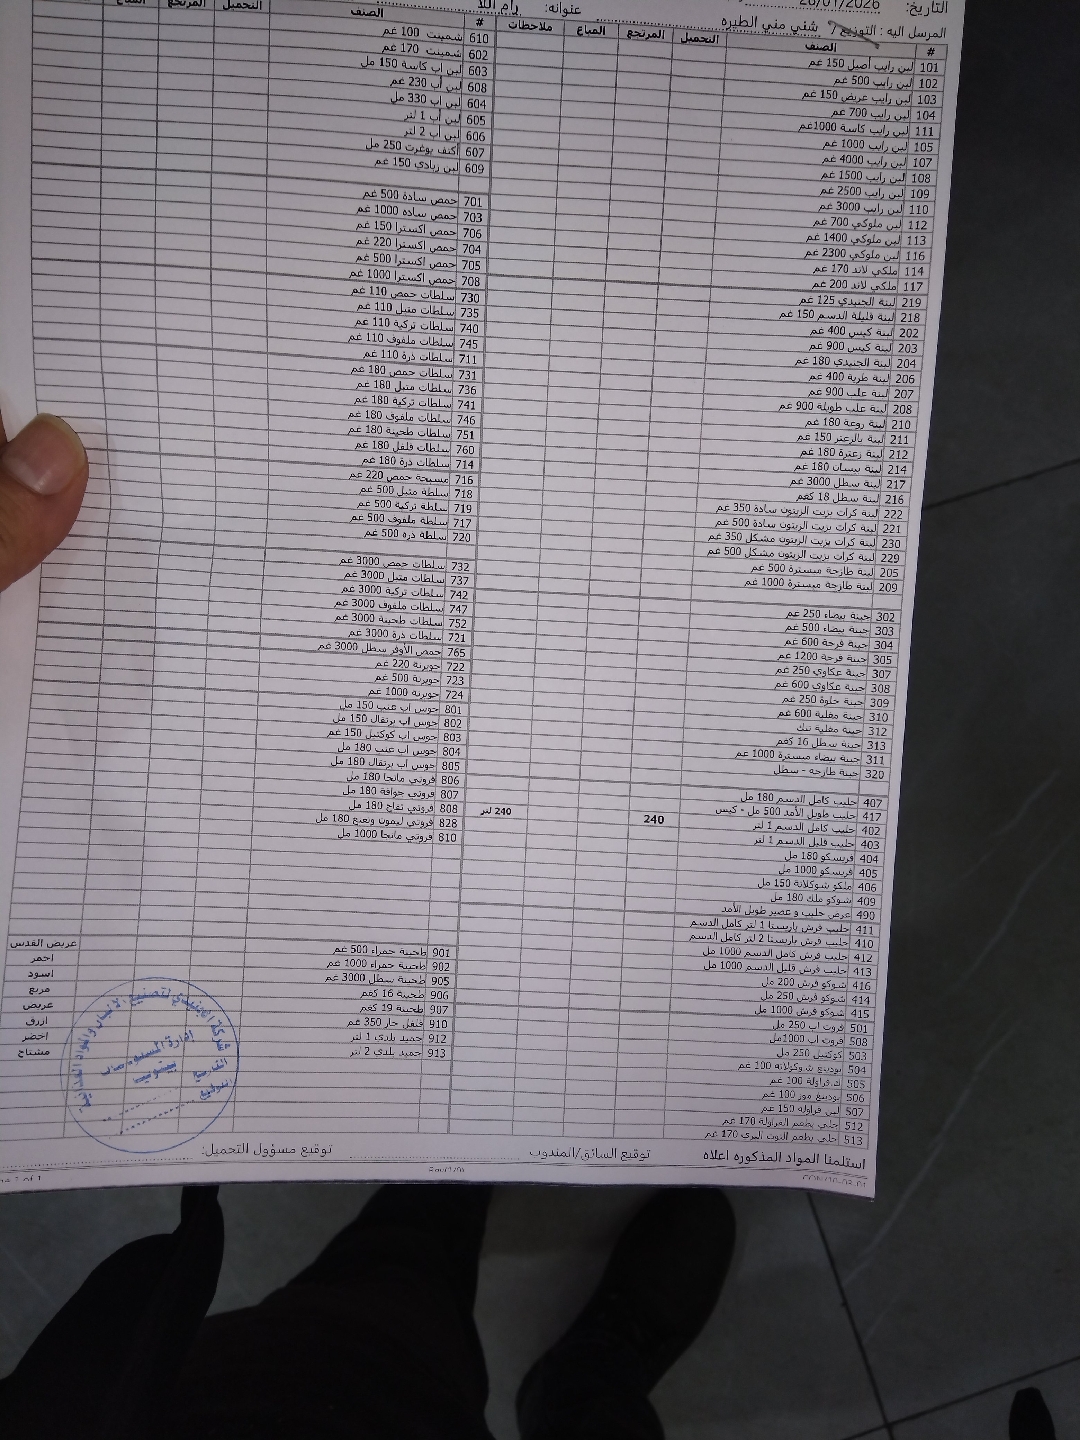 التاريخ: 26/01/2026
عنوانه: رام اللا
المرسل اليه : التوزيع / شني مني الطيره
# الصنف التحميل المرتجع المباع ملاحظات
101 لبن رايب أصيل 150 غم
102 لبن رايب 500 غم
103 لبن رايب عريض 150 غم
104 لبن رايب 700 غم
111 لبن رايب كاسة 1000غم
105 لبن رايب 1000 غم
107 لبن رايب 4000 غم
108 لبن رايب 1500 غم
109 لبن رايب 2500 غم
110 لبن رايب 3000 غم
112 لبن ملوكي 700 غم
113 لبن ملوكي 1400 غم
116 لبن ملوكي 2300 غم
114 ملكي لاند 170 غم
117 ملكي لاند 200 غم
219 لبنة الجنيدي 125 غم
218 لبنة قليلة الدسم 150 غم
202 لبنة كيس 400 غم
203 لبنة كيس 900 غم
204 لبنة الجنيدي 180 غم
206 لبنة طرية 400 غم
207 لبنة علب 900 غم
208 لبنة علب طويلة 900 غم
210 لبنة روعة 180 غم
211 لبنة بالزعتر 150 غم
212 لبنة زعترة 180 غم
214 لبنة بيسان 180 غم
217 لبنة سطل 3000 غم
216 لبنة سطل 18 كغم
222 لبنة كرات بزيت الزيتون سادة 350 غم
221 لبنة كرات بزيت الزيتون سادة 500 غم
230 لبنة كرات بزيت الزيتون مشكل 350 غم
229 لبنة كرات بزيت الزيتون مشكل 500 غم
205 لبنة طازجة مبسترة 500 غم
209 لبنة طازجة مبسترة 1000 غم
302 جبنة بيضاء 250 غم
303 جبنة بيضاء 500 غم
304 جبنة فرحة 600 غم
305 جبنة فرحة 1200 غم
307 جبنة عكاوي 250 غم
308 جبنة عكاوي 600 غم
309 جبنة حلوة 250 غم
310 جبنة مغلية 600 غم
312 جبنة مغلية تنك
313 جبنة سطل 16 كغم
311 جبنة بيضاء مبسترة 1000 غم
320 جبنة طازجه - سطل
407 حليب كامل الدسم 180 مل
417 حليب طويل الأمد 500 مل - كيس
402 حليب كامل الدسم 1 لتر 240 240 لتر
403 حليب قليل الدسم 1 لتر
404 فريسكو 180 مل
405 فريسكو 1000 مل
406 ملكو شوكلاتة 150 مل
409 شوكو ملك 180 مل
490 عرض حليب و عصير طويل الأمد
411 حليب فرش باريستا 1 لتر كامل الدسم
410 حليب فرش باريستا 2 لتر كامل الدسم
412 حليب فرش كامل الدسم 1000 مل
413 حليب فرش قليل الدسم 1000 مل
416 شوكو فرش 200 مل
414 شوكو فرش 250 مل
415 شوكو فرش 1000 مل
501 فروت اب 250 مل
508 فروت اب 1000مل
503 كوكتيل 250 مل
504 بودينغ شوكولاته 100 غم
505 ك.فراولة 100 غم
506 بودينغ موز 100 غم
507 لبن فراولة 150 غم
512 جلي بطعم الفراولة 170 غم
513 جلي بطعم التوت البري 170 غم
# الصنف التحميل المرتجع المباع
610 شمينت 100 غم
602 شمينت 170 غم
603 لبن اب كاسة 150 مل
608 لبن أب 230 غم
604 لبن اب 330 مل
605 لبن أب 1 لتر
606 لبن أب 2 لتر
607 أكتف يوغرت 250 مل
609 لبن زبادي 150 غم
701 حمص سادة 500 غم
703 حمص ساده 1000 غم
706 حمص اكسترا 150 غم
704 حمص اكسترا 220 غم
705 حمص اكسترا 500 غم
708 حمص اكسترا 1000 غم
730 سلطات حمص 110 غم
735 سلطات متبل 110 غم
740 سلطات تركية 110 غم
745 سلطات ملفوف 110 غم
711 سلطات ذرة 110 غم
731 سلطات حمص 180 غم
736 سلطات متبل 180 غم
741 سلطات تركية 180 غم
746 سلطات ملفوف 180 غم
751 سلطات طحينة 180 غم
760 سلطات فلفل 180 غم
714 سلطات ذرة 180 غم
716 مسبحة حمص 220 غم
718 سلطة متبل 500 غم
719 سلطة تركية 500 غم
717 سلطة ملفوف 500 غم
720 سلطة ذره 500 غم
732 سلطات حمص 3000 غم
737 سلطات متبل 3000 غم
742 سلطات تركية 3000 غم
747 سلطات ملفوف 3000 غم
752 سلطات طحينة 3000 غم
721 سلطات ذرة 3000 غم
765 حمص الأوفر سطل 3000 غم
722 جويرنه 220 غم
723 جويرنة 500 غم
724 جويرنة 1000 غم
801 جوس اب عنب 150 مل
802 جوس اب برتقال 150 مل
803 جوس اب كوكتيل 150 غم
804 جوس اب عنب 180 مل
805 جوس اب برتقال 180 مل
806 فروتي مانجا 180 مل
807 فروتي جوافة 180 مل
808 فروتي تفاح 180 مل
828 فروتي ليمون ونعنع 180 مل
810 فروتي مانجا 1000 مل
901 طحينية حمراء 500 غم
902 طحينية حمراء 1000 غم
905 طحينية سطل 3000 غم
906 طحينة 16 كغم
907 طحينة 19 كغم
910 فلفل حار 350 غم
912 جميد بلدي 1 لتر
913 جميد بلدي 2 لتر
عريض القدس
احمر
اسود
مربع
عريض
ازرق
اخضر
مشتاح
شركة الجنيدي لتصنيع الالبان والمواد الغذائية
إدارة المستودعات
بيتونيا
استلمنا المواد المذكوره اعلاه
توقيع السائق/المندوب
توقيع مسؤول التحميل: